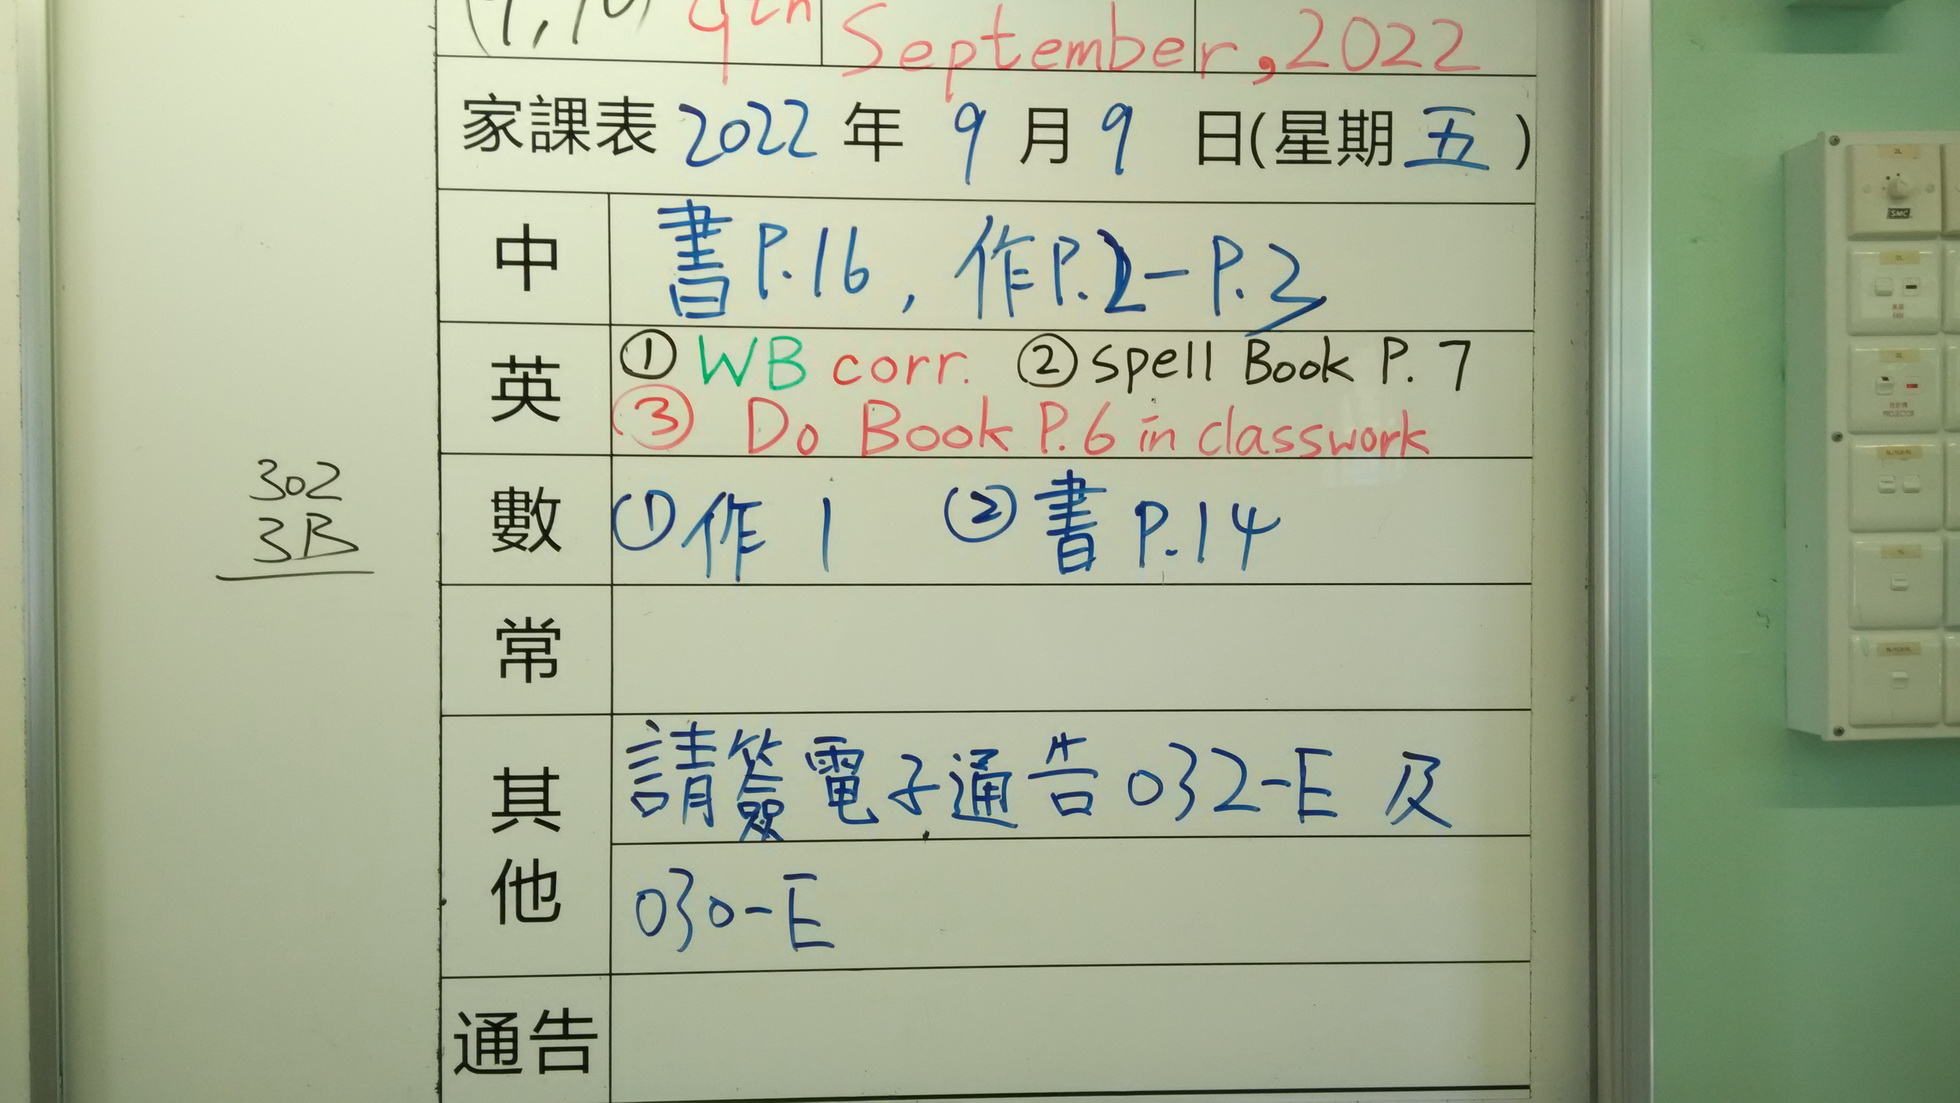 9th September, 2022
家課表 2022 年 9 月 9 日(星期 五 )
中 書 P.16 , 作 P.2 - P.3
英 ① WB corr. ② spell Book P. 7
③ Do Book P.6 in classwork
302
3B
數 ① 作 1 ② 書 P.14
常
其他 請簽電子通告 032-E 及
030-E
通告
SMC